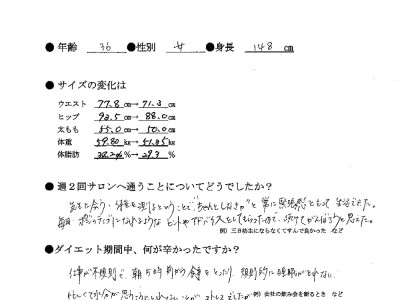 ● 年齢 36 ●性別 女 ●身長 148 cm
● サイズの変化は
ウエスト 77.8 cm→ 71.3 cm
ヒップ 92.5 cm→ 88.0 cm
太もも 55.0 cm→ 50.0 cm
体重 59.80 kg→ 51.85 kg
体脂肪 %→ 29.3 %
● 週2回サロンへ通うことについてどうでしたか?
先生と会う・体重を測るということで"ちゃんとしなきゃ"と常に緊張感をもって生活できた。
毎回、ポジティブになれるような ヒントやアドバイスをしてもらったので、続けてがんばろうと思えた。
例) 三日坊主にならなくてすんで良かった など
●ダイエット期間中、何が辛かったですか?
仕事が不規則で、朝 時 から食事をとったり、規則的に睡眠がとれない、
例) 会社の飲み会を断るとき など